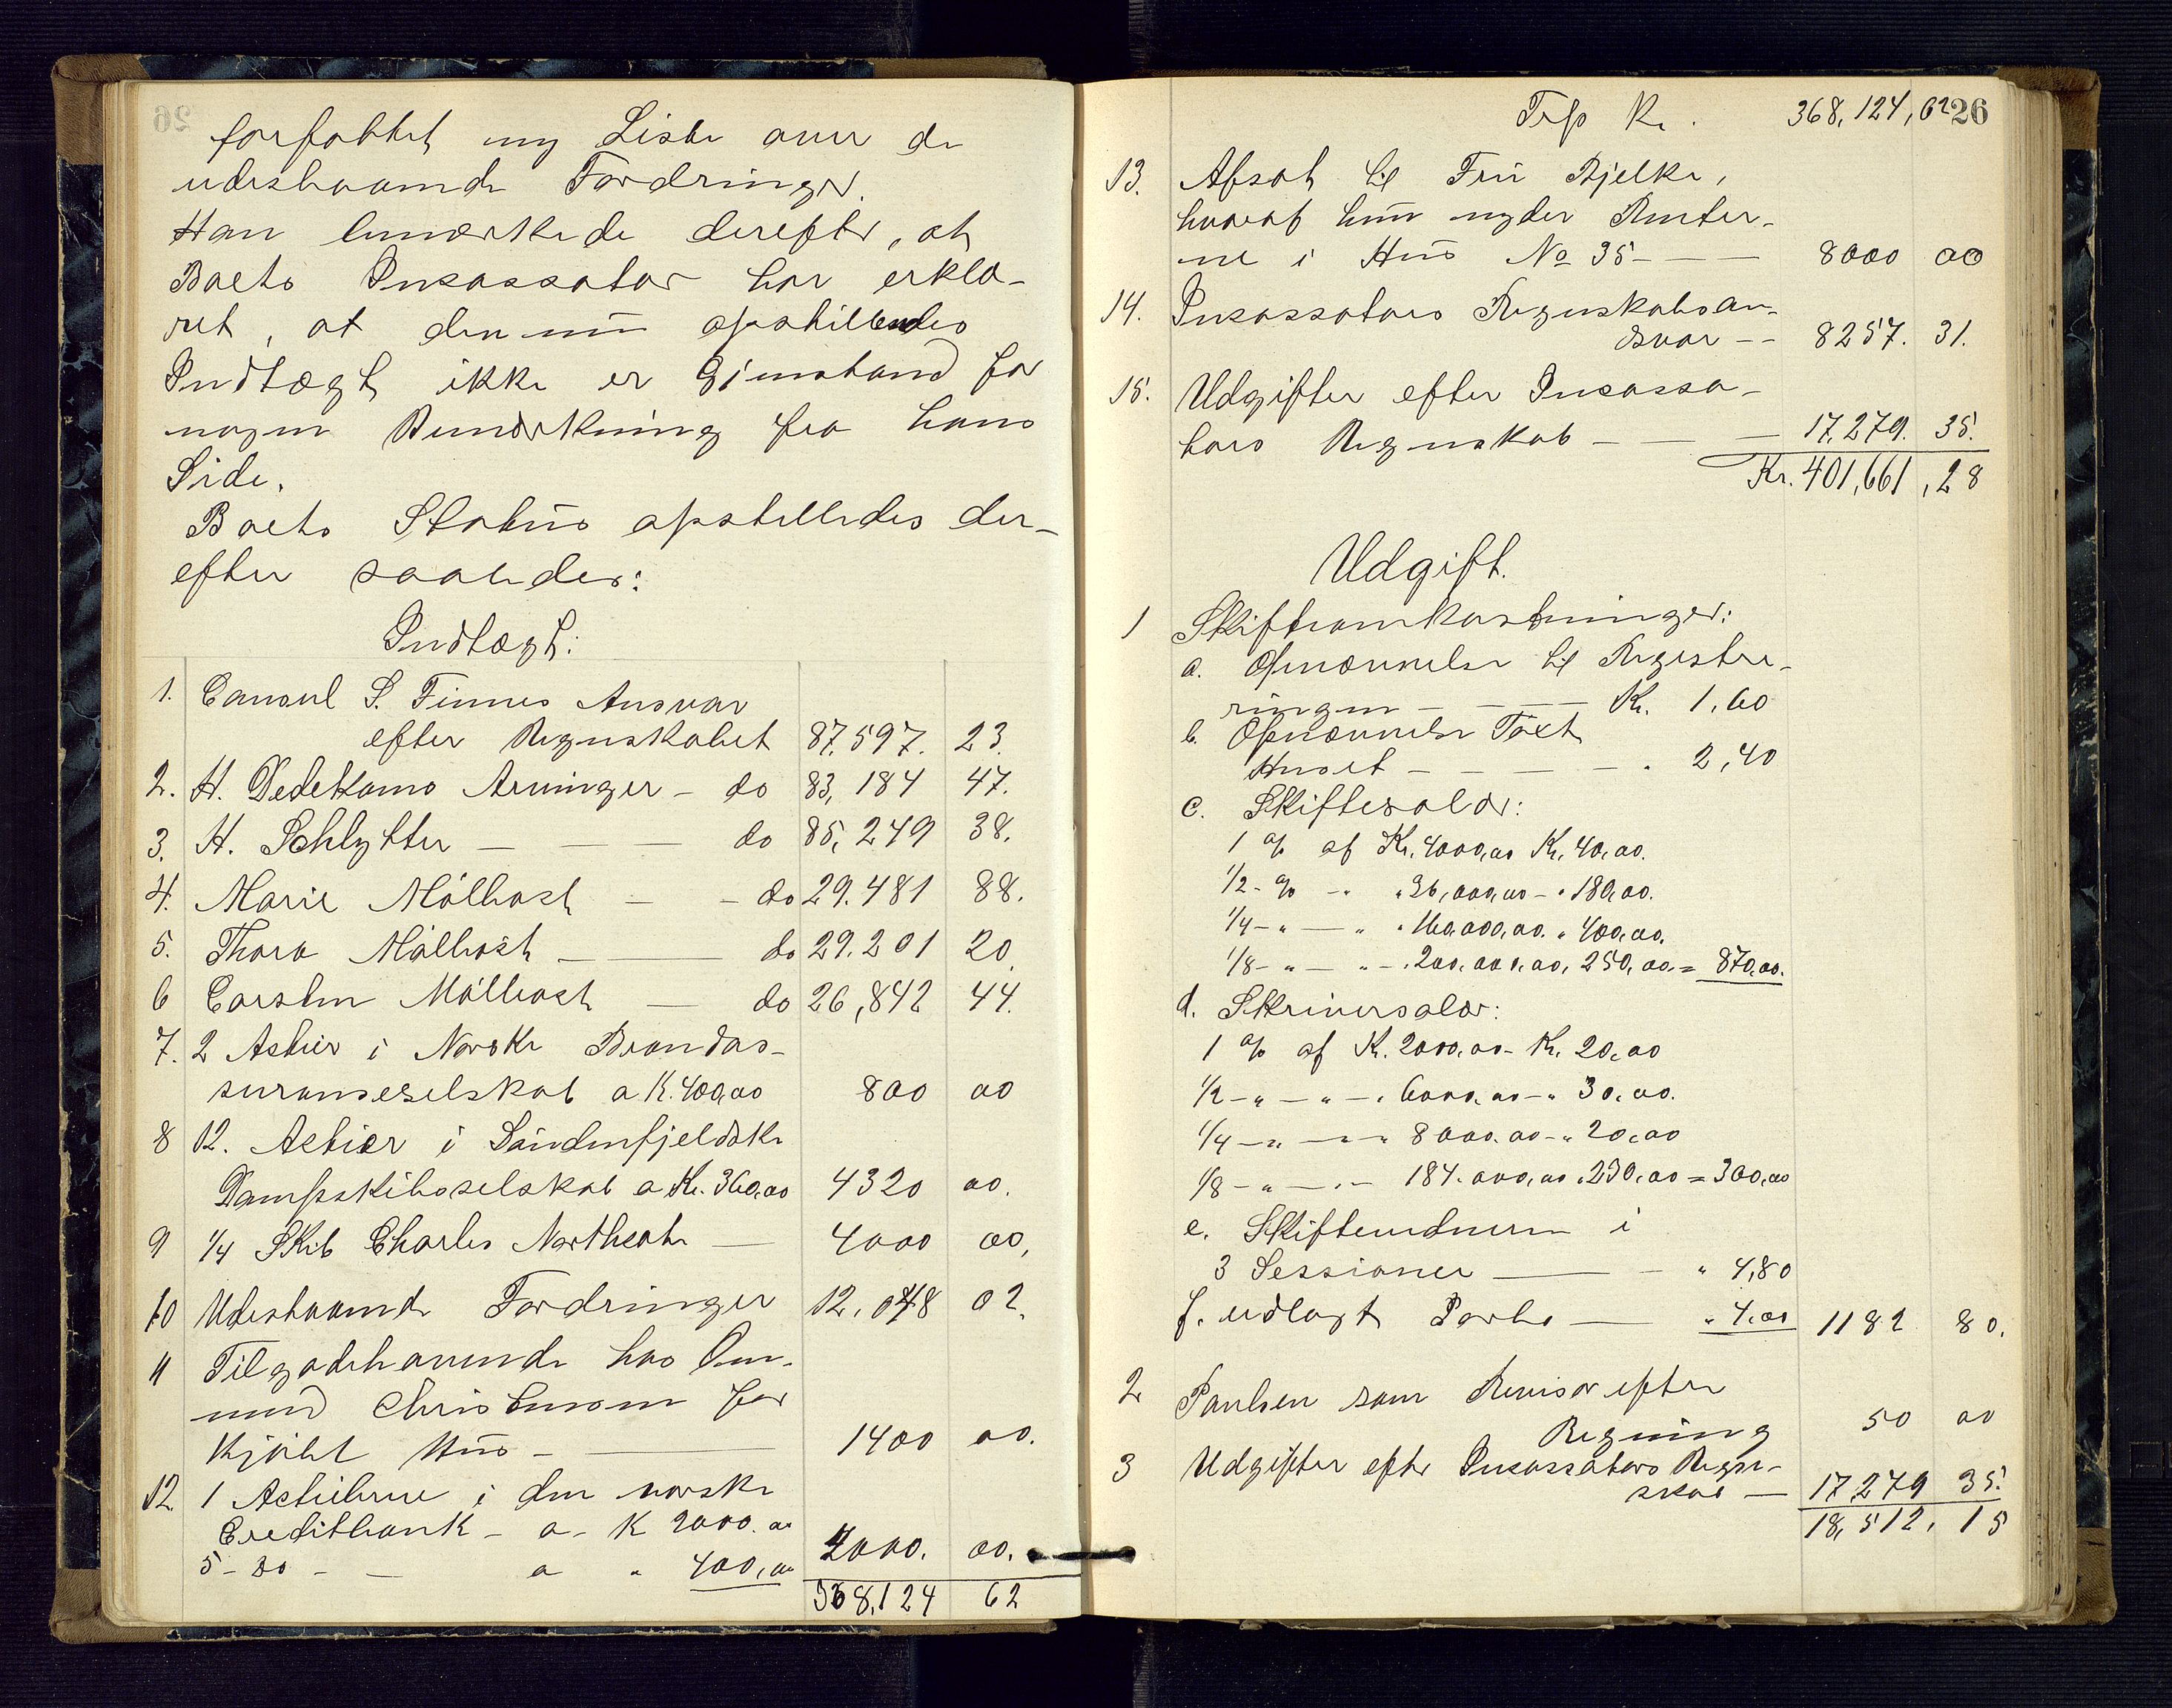 forfattet ny Liste over de
udestaaende Fordringer.
Han bemærkede derefter, at
Boets Incassator har erklæ-
ret, at den nu opstillendes
Indtægt ikke er Gjenstand for
nogen Bemærkning fra hans
Side.
Boets Status opstilledes der-
efter saaledes:
Indtægt:
1. Consul S. Finnes Ansvar
efter Regnskabet 87,597. 23.
2. H. Dedekams Arvinger - do 83,184 47.
3. H. Schlytter - do 85,249 38.
4. Marie Möllhost - do 29.481 88.
5. Thora Möllhost - do 29.201 20.
6 Carsten Möllhost - do 26,842 44.
7. 2 Actier i Norske Brandas-
suranceselskab a K. 400,00 800 00
8 12. Actier i Söndenfjeldske
Dampskibsselskab a Kr. 360,00 4320 00.
9 1/4 Skib Charles Northcote - 4000 00,
10 Udestaaende Fordringer 12,048 02.
11 Tilgodehavende hos Om-
mund Christensen for
kjöbt Hus - 1400 00.
12 1 Actiebrev i den norske
Creditbank - a - K 2000.00
5 - do - a " 400,00 4000. 00.
368,124 62
Trsp Kr. 368,124,62 26
13. Afsat til Fru Bjelke,
hvoraf hun nyder Renter-
ne i Hus No 35 - 8000 00
14. Incassators Regnskabsan-
svar - - 8257. 31.
15. Udgifter efter Incassa-
tors Regnskab - 17,279. 35.
Kr. 401,661,28
Udgift.
1 Skifteomkostninger:
a. Opnævnelse til Registre-
ringen - Kr. 1,60
b. Opnævnelse Taxt
Huset - " 2,40
c. Skiftesalær:
1 % af Kr. 4000,00 Kr. 40,00.
1/2 - % - " " 36,000,00 - " 180,00.
1/4 - " - " " 160,000,00. " 400,00.
1/8 - " - " - " 200,000,00, 250,00 = 870,00.
d. Skriversalær:
1 % af K. 2000,00 - Kr. 20,00
1/2 - " - " - " 6000,00 - " 30,00.
1/4 - " - " - " 8000.00 - " 20,00
1/8 - " - " - 184.000,00 " 230,00 = 300,00
e. Skiftevidnerne i
3 Sessioner - " 4,80
f. udlagt Porto - " 4.00 1182 80.
2 Paulsen som Revisor efter
Regning 50 00
3 Udgifter efter Incassators Regn-
skab - 17,279 35.
18,512, 15